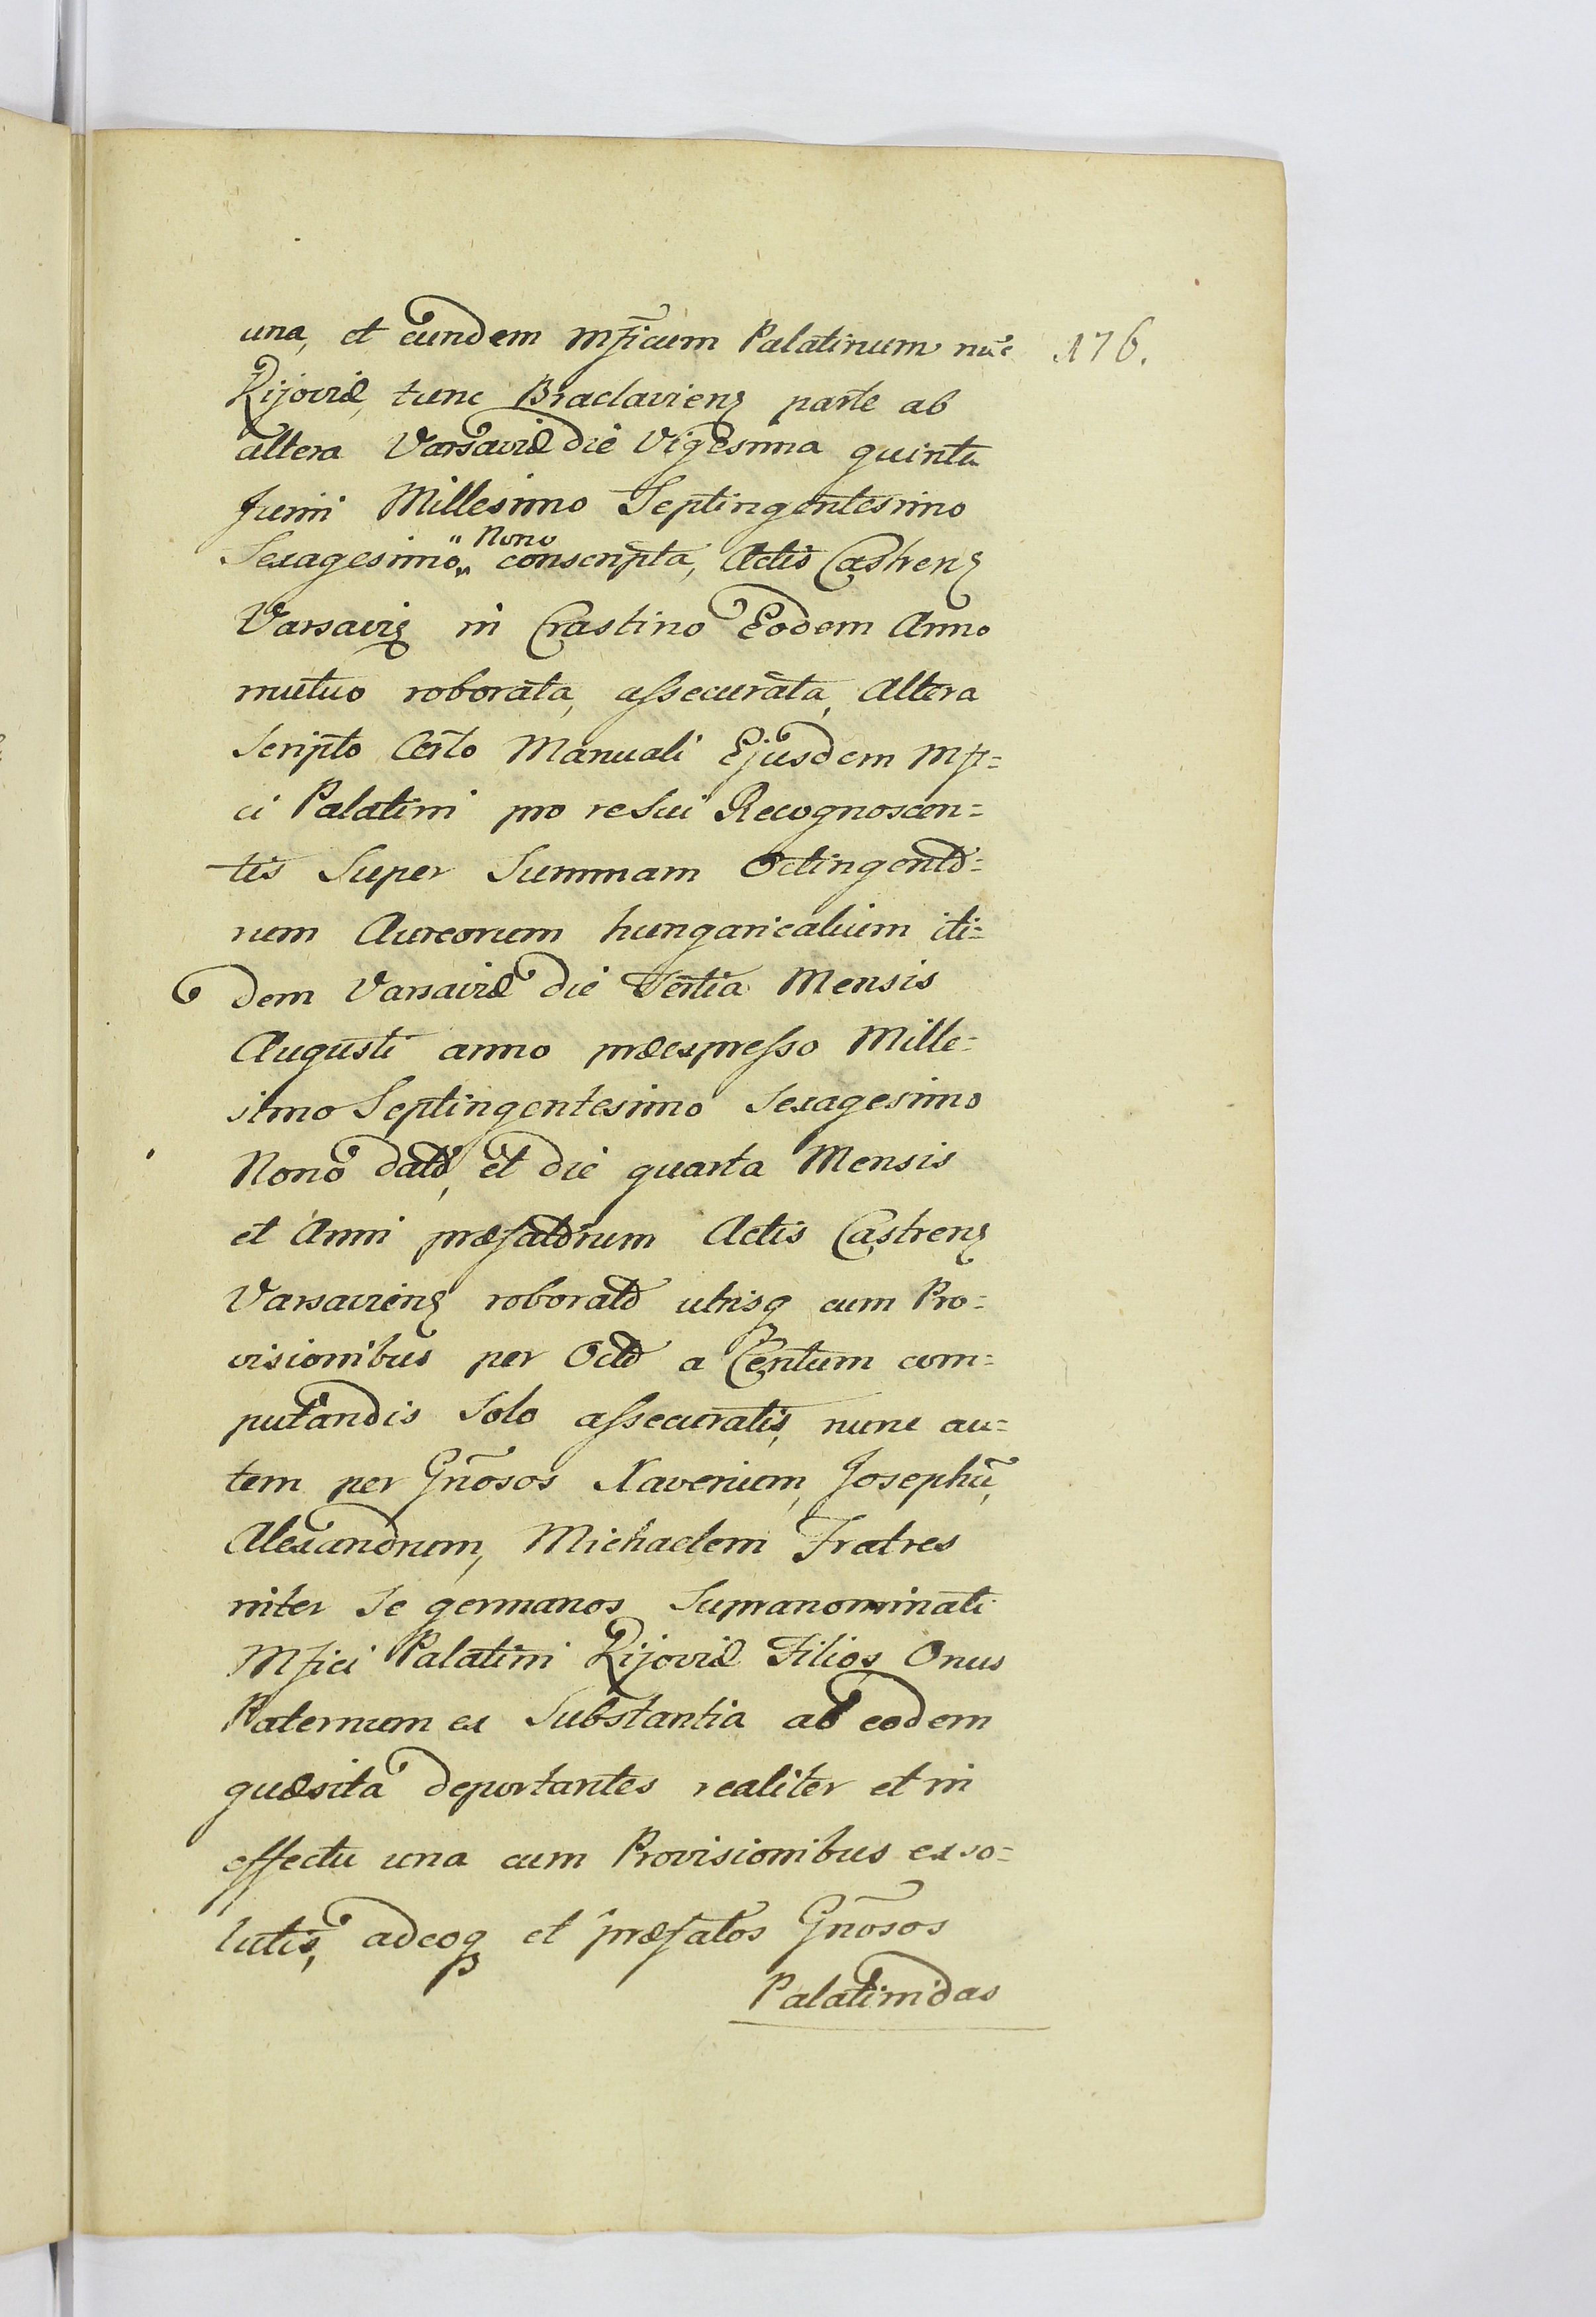 una, et eundem Mficum Palatinum nũc 176.
Kijoviæ, tunc Braclavienȝ parte ab
altera Varsaviæ die Vigesima quinta
Junii Millesimo Septingentesimo
Sexagesimo „ Nono conscripta, Actis Castrenȝ
Varsavięȝ in Crastino Eodem Anno
mutuo roborata, assecurata, altera
Scripto Certo Manuali Ejusdem Mfi=
ci Palatini pro re Sui Recognoscen=
tis Super Summam Octingento=
rum Aureorum hungaricalium iti=
dem Varsaviæ die Tertia Mensis
Augusti anno præexpresso Mille=
simo Septingentesimo Sexagesimo
Nono dato, et die quarta Mensis
et Anni præfatorum Actis Castrenȝ
Varsavienȝ roborato utrisqȝ cum Pro=
visionibus per Octo a Centum com=
putandis Solo assecuratis, nunc au=
tem per Gñosos Xaverium, Josephũ,
Alexandrum, Michaelem Fratres
inter Se germanos Supranominati
Mfici Palatini Kijoviæ Filios, Onus
Paternum ex Substantia ab eodem
quæsita deportantes realiter et in
effectu una cum Provisionibus exso=
lutis, adeoqȝ et præfatos Gñosos
Palatinidas